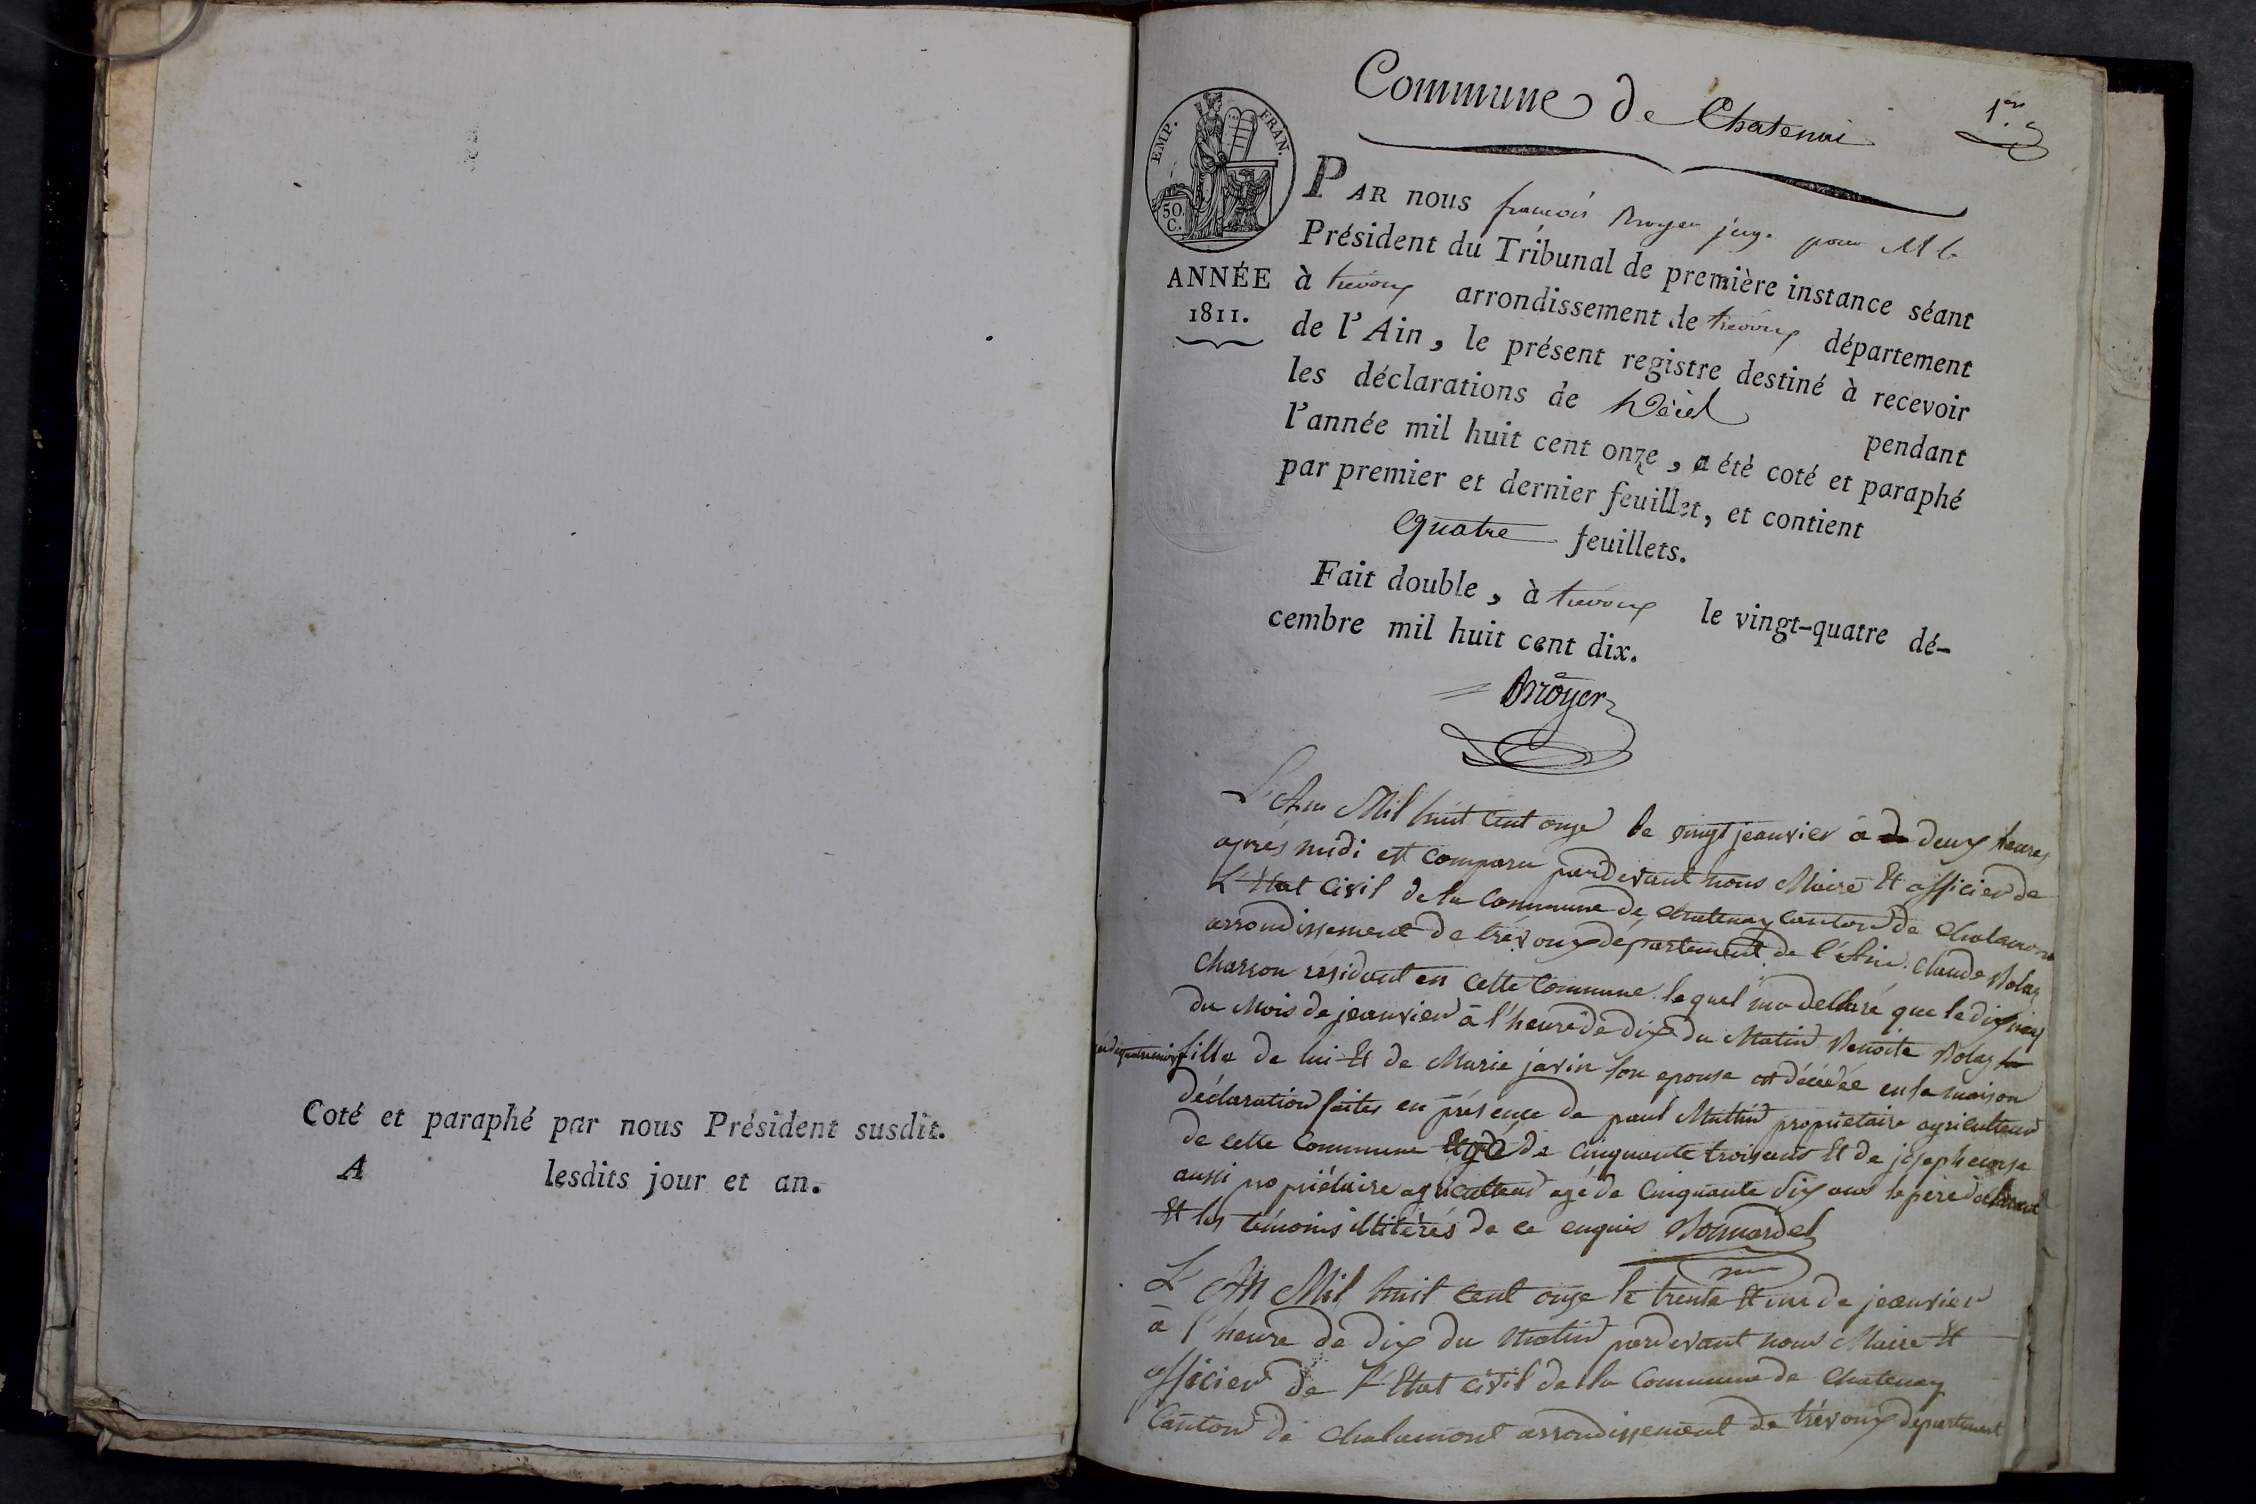 Coté et paraphé par nous Président susdit.
A lesdits jour et an.
Commune de Chatenai
1er
EMP. FRAN.
50 C.
ANNÉE
1811.
PAR nous françois Broyer juge pour Mr le
Président du Tribunal de première instance séant
à trevoux arrondissement de trevoux département
de l'Ain, le présent registre destiné à recevoir
les déclarations de Décès pendant
l'année mil huit cent onze, a été coté et paraphé
par premier et dernier feuillet, et contient
quatre feuillets.
Fait double, à trevoux le vingt-quatre dé-
cembre mil huit cent dix.
Broyer
L'An Mil huit cent onze le vingt jeanvier à de deux heures
après midi est comparu pardevant nous Maire Et officier de
L'Etat civil de la Commune de chatenay canton de chalamont
arrondissement de trevoux département de l'Ain. Claude Bolas
charron résidant en cette Commune. lequel ma declaré que le dix neuf
du Mois de jeanvier à l'heure de dix du Matin Benoite Bolas
fille de lui Et de Marie javin son epouse est décédée en sa maison
déclaration faites en présence de paul Mathid propriétaire agriculteur
de cette Commune agé de cinquante trois ans Et de joseph
aussi propriétaire agriculteur agé de Cinquante dix ans le père déclarant
Et les témoins illitérés de ce enquis Bonnardel
L'An Mil huit cent onze le trente Et un de jeanvier
à l'heure de dix du Matin pardevant nous Maire Et
officier de L'Etat civil de la Commune de Chatenay
Canton de chalamont arrondissement de trévoux département